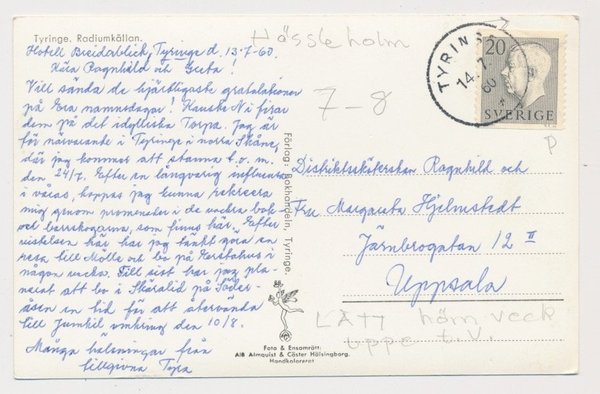 Tyringe. Radiumkällan.
Hotell Breidablick, Tyringe d. 13-7-60.
Kära Ragnhild och Greta!
Vill sända de hjärtligaste gratulationer
på Era namnsdagar! Kanske Ni firar
dem på det idylliska Torpa. Jag är
för närvarande i Tyringe i norra Skåne,
där jag kommer att stanna t.o.m.
den 24/7. Efter en långvarig influensa
i våras, hoppas jag kunna rekreera
mig genom promenader i de vackra bok-
och barrskogarna, som finns här. Efter
vistelsen här har jag tänkt göra en
resa till Mölle och bo på
någon vecka. Till sist har jag pla-
nerat att bo i Skäralid på Söder-
åsen en tid för att återvända
till Jumkil omkring den 10/8.
Många hälsningar från
tillgivna
Förlag: Bokhandeln, Tyringe.
Foto & Ensamrätt:
AIB Almquist & Cöster Hälsingborg.
Handkolorerat
Hässleholm
7-8
TYRINGE
14.7.
60
20
SVERIGE
p
Distriktssköterskan Ragnhild och
Fru Margareta Hjelmstedt
Järnbrogatan 12 II
Uppsala
LÄTT hörn veck
uppe t.v.